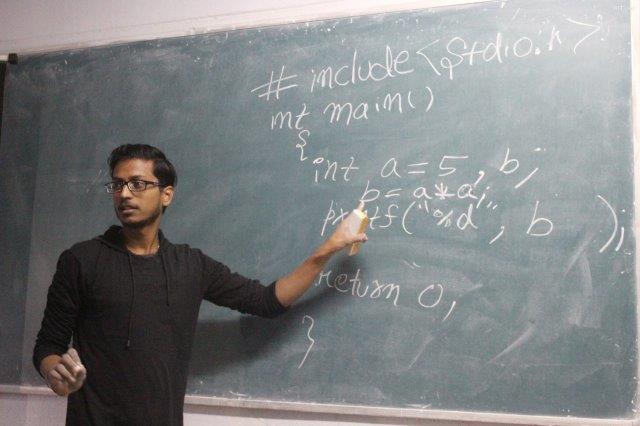 # include <stdio.h>
int main()
{
int a = 5, b;
b = a*a;
printf("%d", b );
return 0;
}